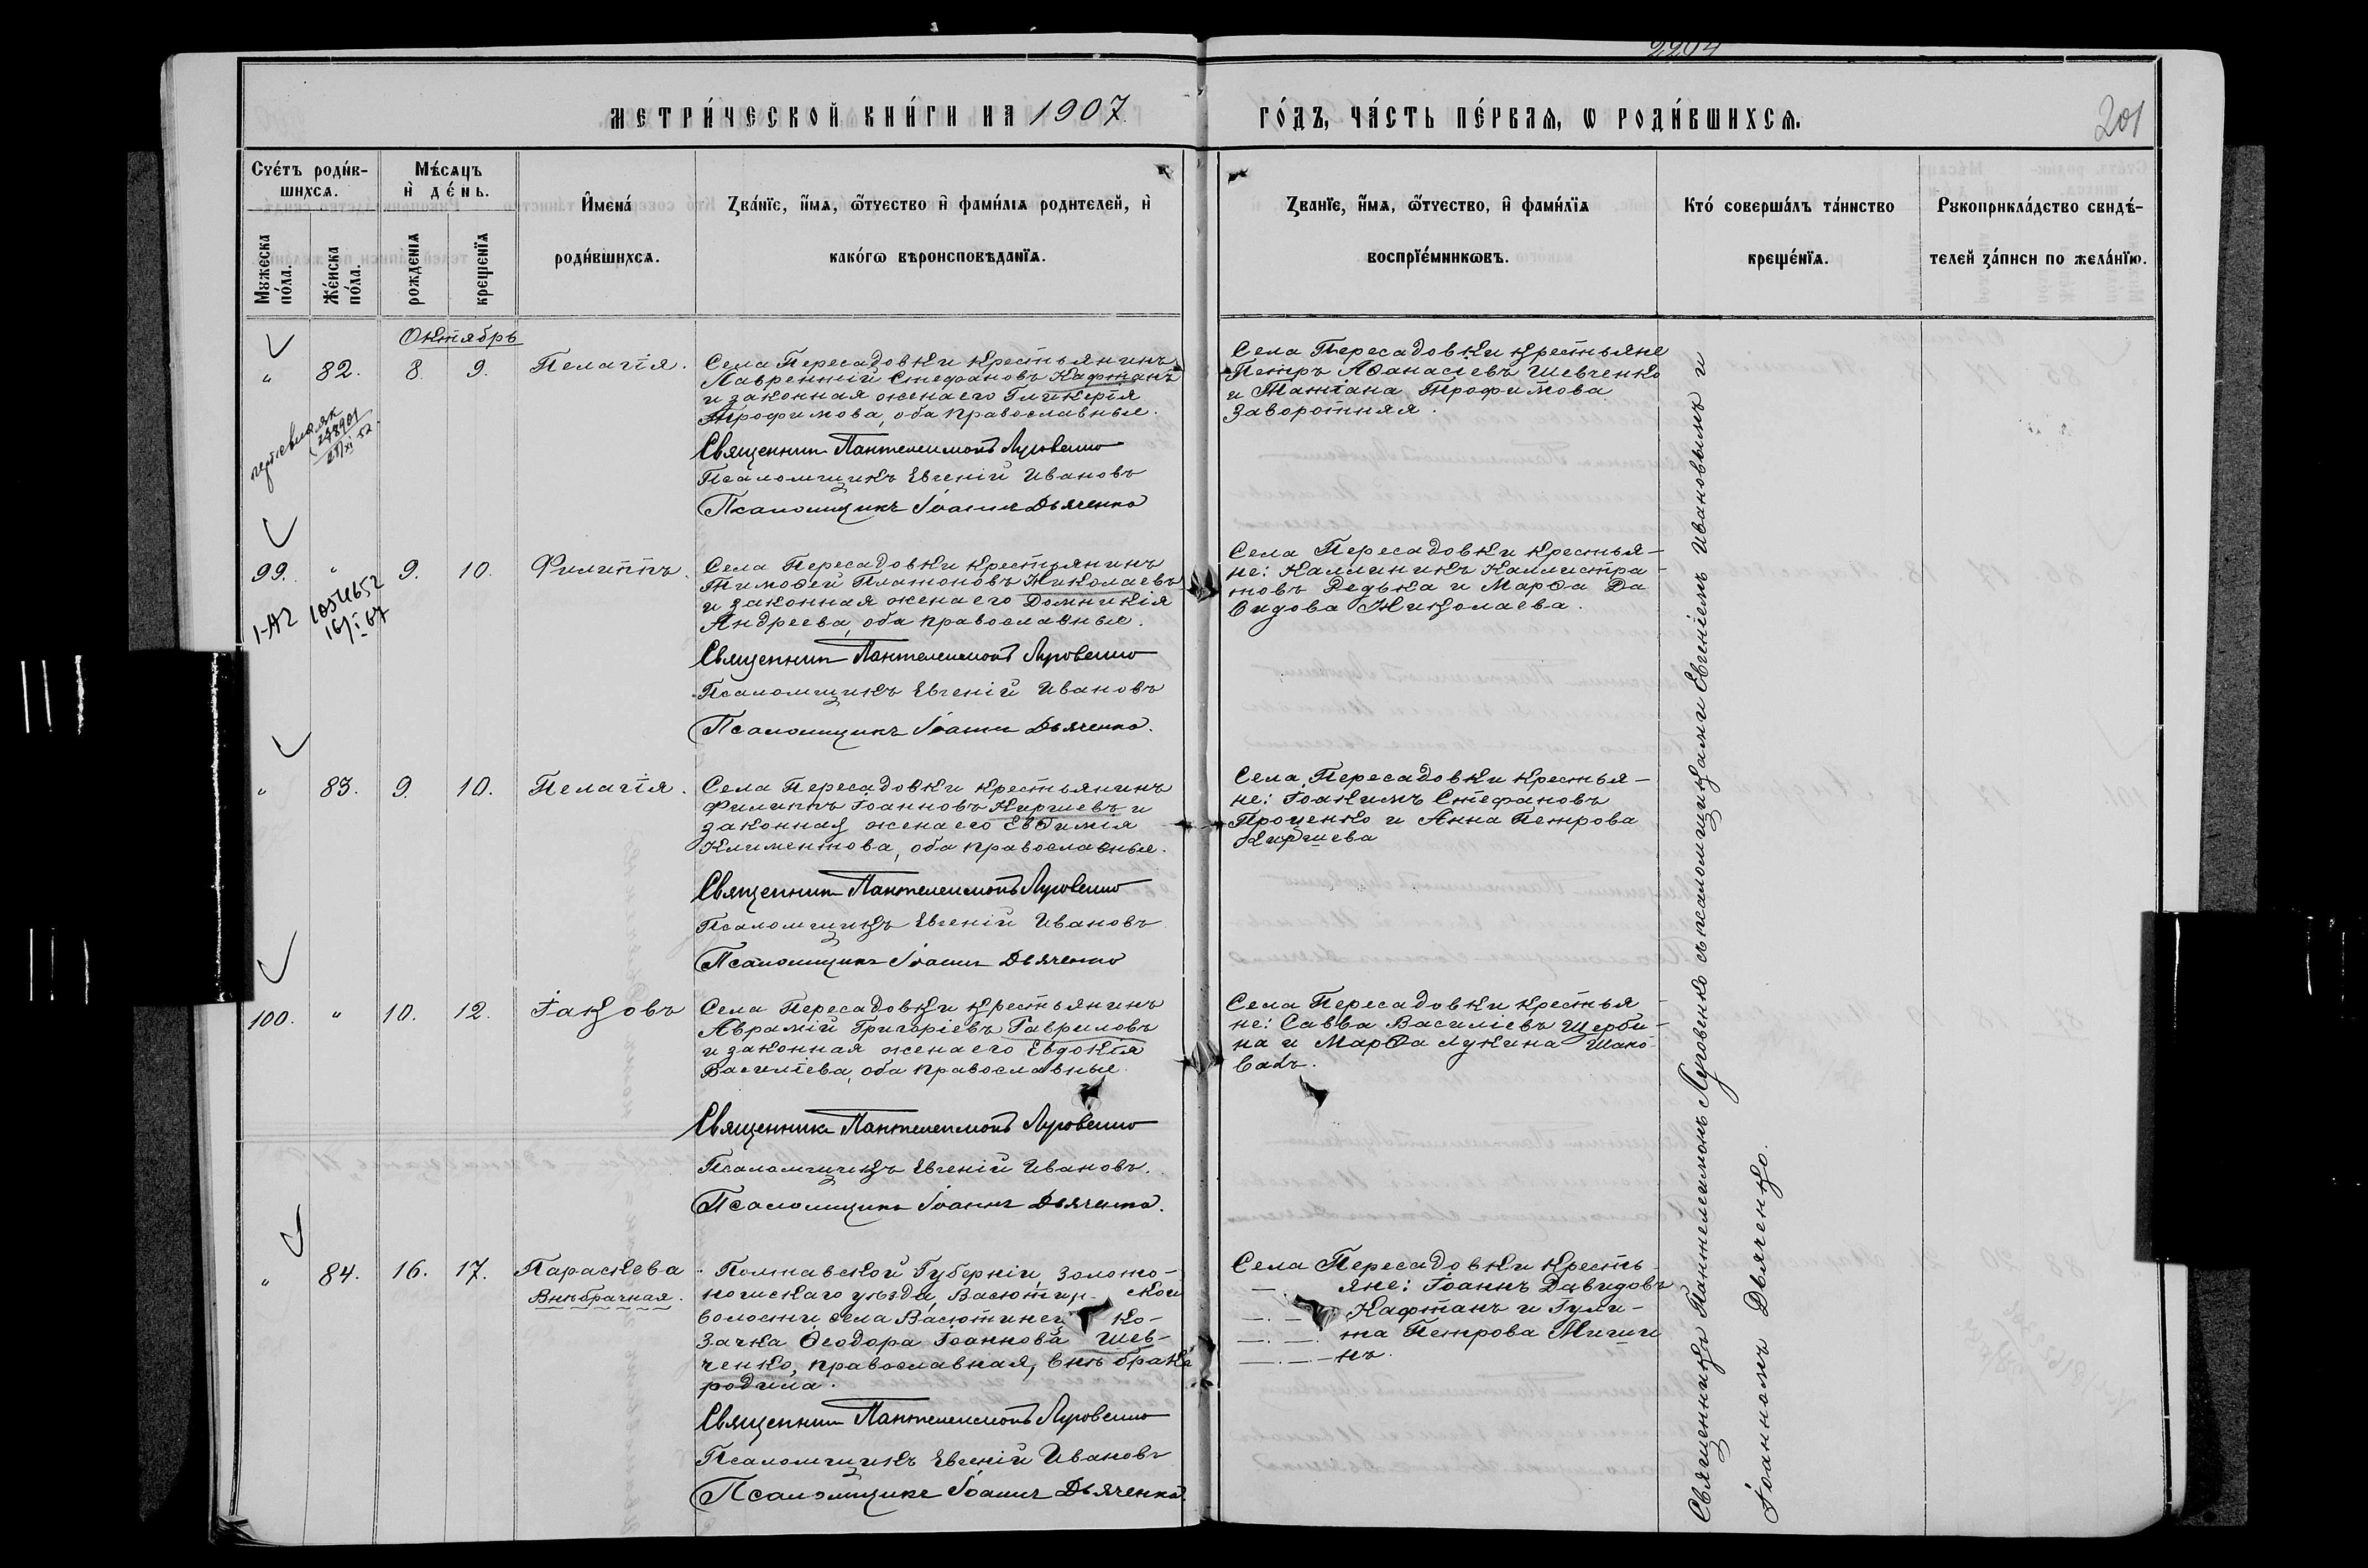 2204
МЕТРИ́ЧЕСКОЙ КНИ́ГИ НА 1907
ГО́ДЪ, ЧА́СТЬ ПЕ́РВАѦ, Ѡ РОДИ́ВШИХСѦ.
201
Сче́тъ роди́в-
шихсѧ.
Мѣ́сѧцъ
и҆ де́нь.
И҆мена́
роди́вшихсѧ.
Зва́нїе, и҆́мѧ, ѻ҆́тчество и҆ фами́лїѧ родителей, и҆
како́гѡ вѣроисповѣданїѧ.
Зва́нїе, и҆́мѧ, ѻ҆́тчество, и҆ фами́лїѧ
воспрїе́мникѡвъ.
Кто́ соверша́лъ та́инство
креще́нїѧ.
Рꙋкоприкла́дство свидѣ́-
телей за́писи по жела́нїю.
Мꙋжеска
по́ла.
Же́нска
по́ла.
рожденїѧ
крещенїѧ
Октябрь
" 82. 8. 9. Пелагія.
Села Пересадовки крестьянинъ
Лаврентій Стефановъ Кафтанъ
и законная жена его Гликерія
Трофимова, оба православные.
Священник Пантелеимонъ Луговенко
Псаломщикъ Евгеній Ивановъ
Псаломщикъ Іоаннъ Дьяченко
Села Пересадовки крестьяне
Петръ Аѳанасіевъ Шевченко
и Татіана Трофимова
Заворотняя.
99. " 9. 10. Филиппъ.
1-А2 1054652
16/I-67
Села Пересадовки крестьянинъ
Тимоѳей Платоновъ Николаевъ
и законная жена его Домникія
Андреева, оба православные.
Священник Пантелеимонъ Луговенко
Псаломщикъ Евгеній Ивановъ
Псаломщикъ Іоаннъ Дьяченко.
Села Пересадовки крестья-
не: Каллиникъ Каллистра-
товъ Редька и Марѳа Да
видова Николаева.
" 83. 9. 10. Пелагія.
Села Пересадовки крестьянинъ
Филиппъ Іоанновъ Киргиевъ и
законная жена его Евѳимія
Климентова, оба православные.
Священник Пантелеимонъ Луговенко
Псаломщикъ Евгеній Ивановъ
Псаломщикъ Іоаннъ Дьяченко
Села Пересадовки крестья-
не: Іоакимъ Стефановъ
Проценко и Анна Петрова
100. " 10. 12. Іаковъ
Села Пересадовки крестьянинъ
Аврамій Григоріевъ Гавриловъ
и законная жена его Евдокія
Василіева, оба православные.
Священник Пантелеимонъ Луговенко
Псаломщикъ Евгеній Ивановъ.
Псаломщикъ Іоаннъ Дьяченко.
Села Пересадовки крестья
не: Савва Василіевъ Щерби-
на и Марѳа Лукина Шапо-
валъ.
" 84. 16. 17. Параскева
Внѣбрачная.
Полтавской Губерніи, Золото-
ношскаго уѣзда, Васютин- ской
волости села Васютинец ко-
зачка Ѳеодора Іоаннова Шев-
ченко, православная, внѣ брака
родила.
Священник Пантелеимонъ Луговенко
Псаломщикъ Евгеній Ивановъ
Псаломщикъ Іоаннъ Дьяченко.
Села Пересадовки кресть-
яне: Іоаннъ Давидовъ
Кафтанъ и Гули-
та Петрова Мигиги
нъ.
Священникъ Пантелеимонъ Луговенко съ псаломщиками Евгеніемъ Ивановымъ и
Іоанномъ Дьяченко.